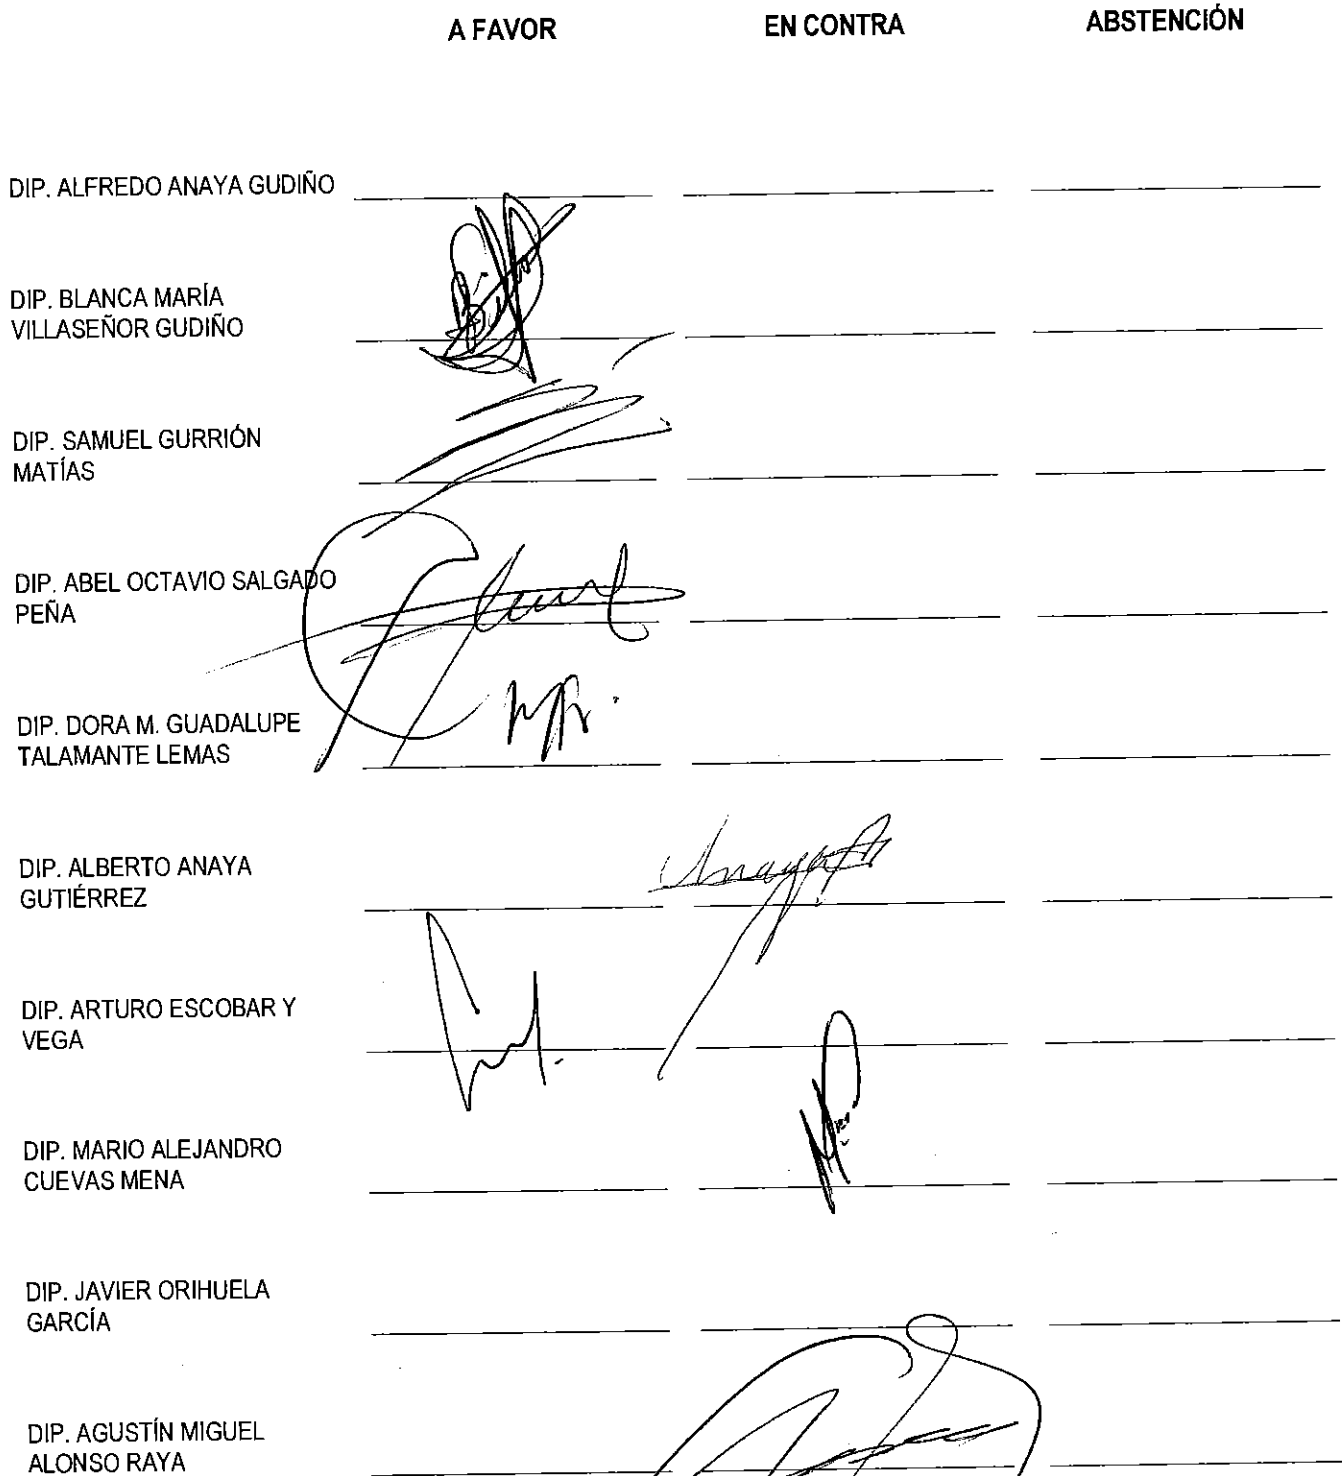 A FAVOR EN CONTRA ABSTENCIÓN
DIP. ALFREDO ANAYA GUDIÑO
DIP. BLANCA MARÍA
VILLASEÑOR GUDIÑO
DIP. SAMUEL GURRIÓN
MATÍAS
DIP. ABEL OCTAVIO SALGADO
PEÑA
DIP. DORA M. GUADALUPE
TALAMANTE LEMAS
DIP. ALBERTO ANAYA
GUTIÉRREZ
Anaya
DIP. ARTURO ESCOBAR Y
VEGA
DIP. MARIO ALEJANDRO
CUEVAS MENA
DIP. JAVIER ORIHUELA
GARCÍA
DIP. AGUSTÍN MIGUEL
ALONSO RAYA